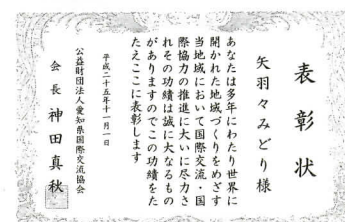 表彰状
矢羽々みどり様
あなたは多年にわたり世界に
開かれた地域づくりをめざす
当地域において国際交流・国
際協力の推進に大いに尽力さ
れその功績は誠に大なるもの
がありますのでこの功績をた
たえここに表彰します
平成二十五年十一月一日
公益財団法人愛知県国際交流協会
会長 神田真秋